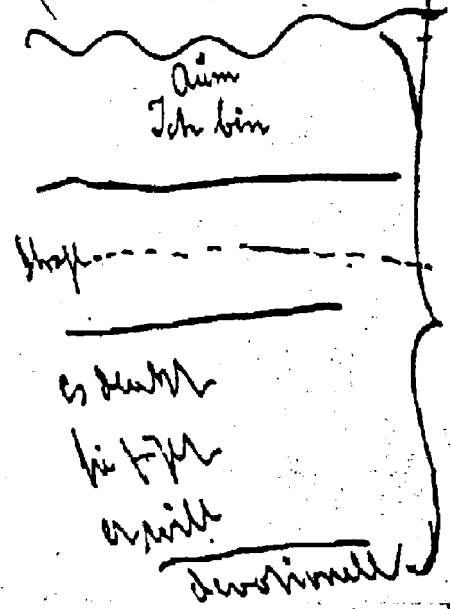 Aum
Ich bin
es denkt
sie fühlt
er will
devotionell